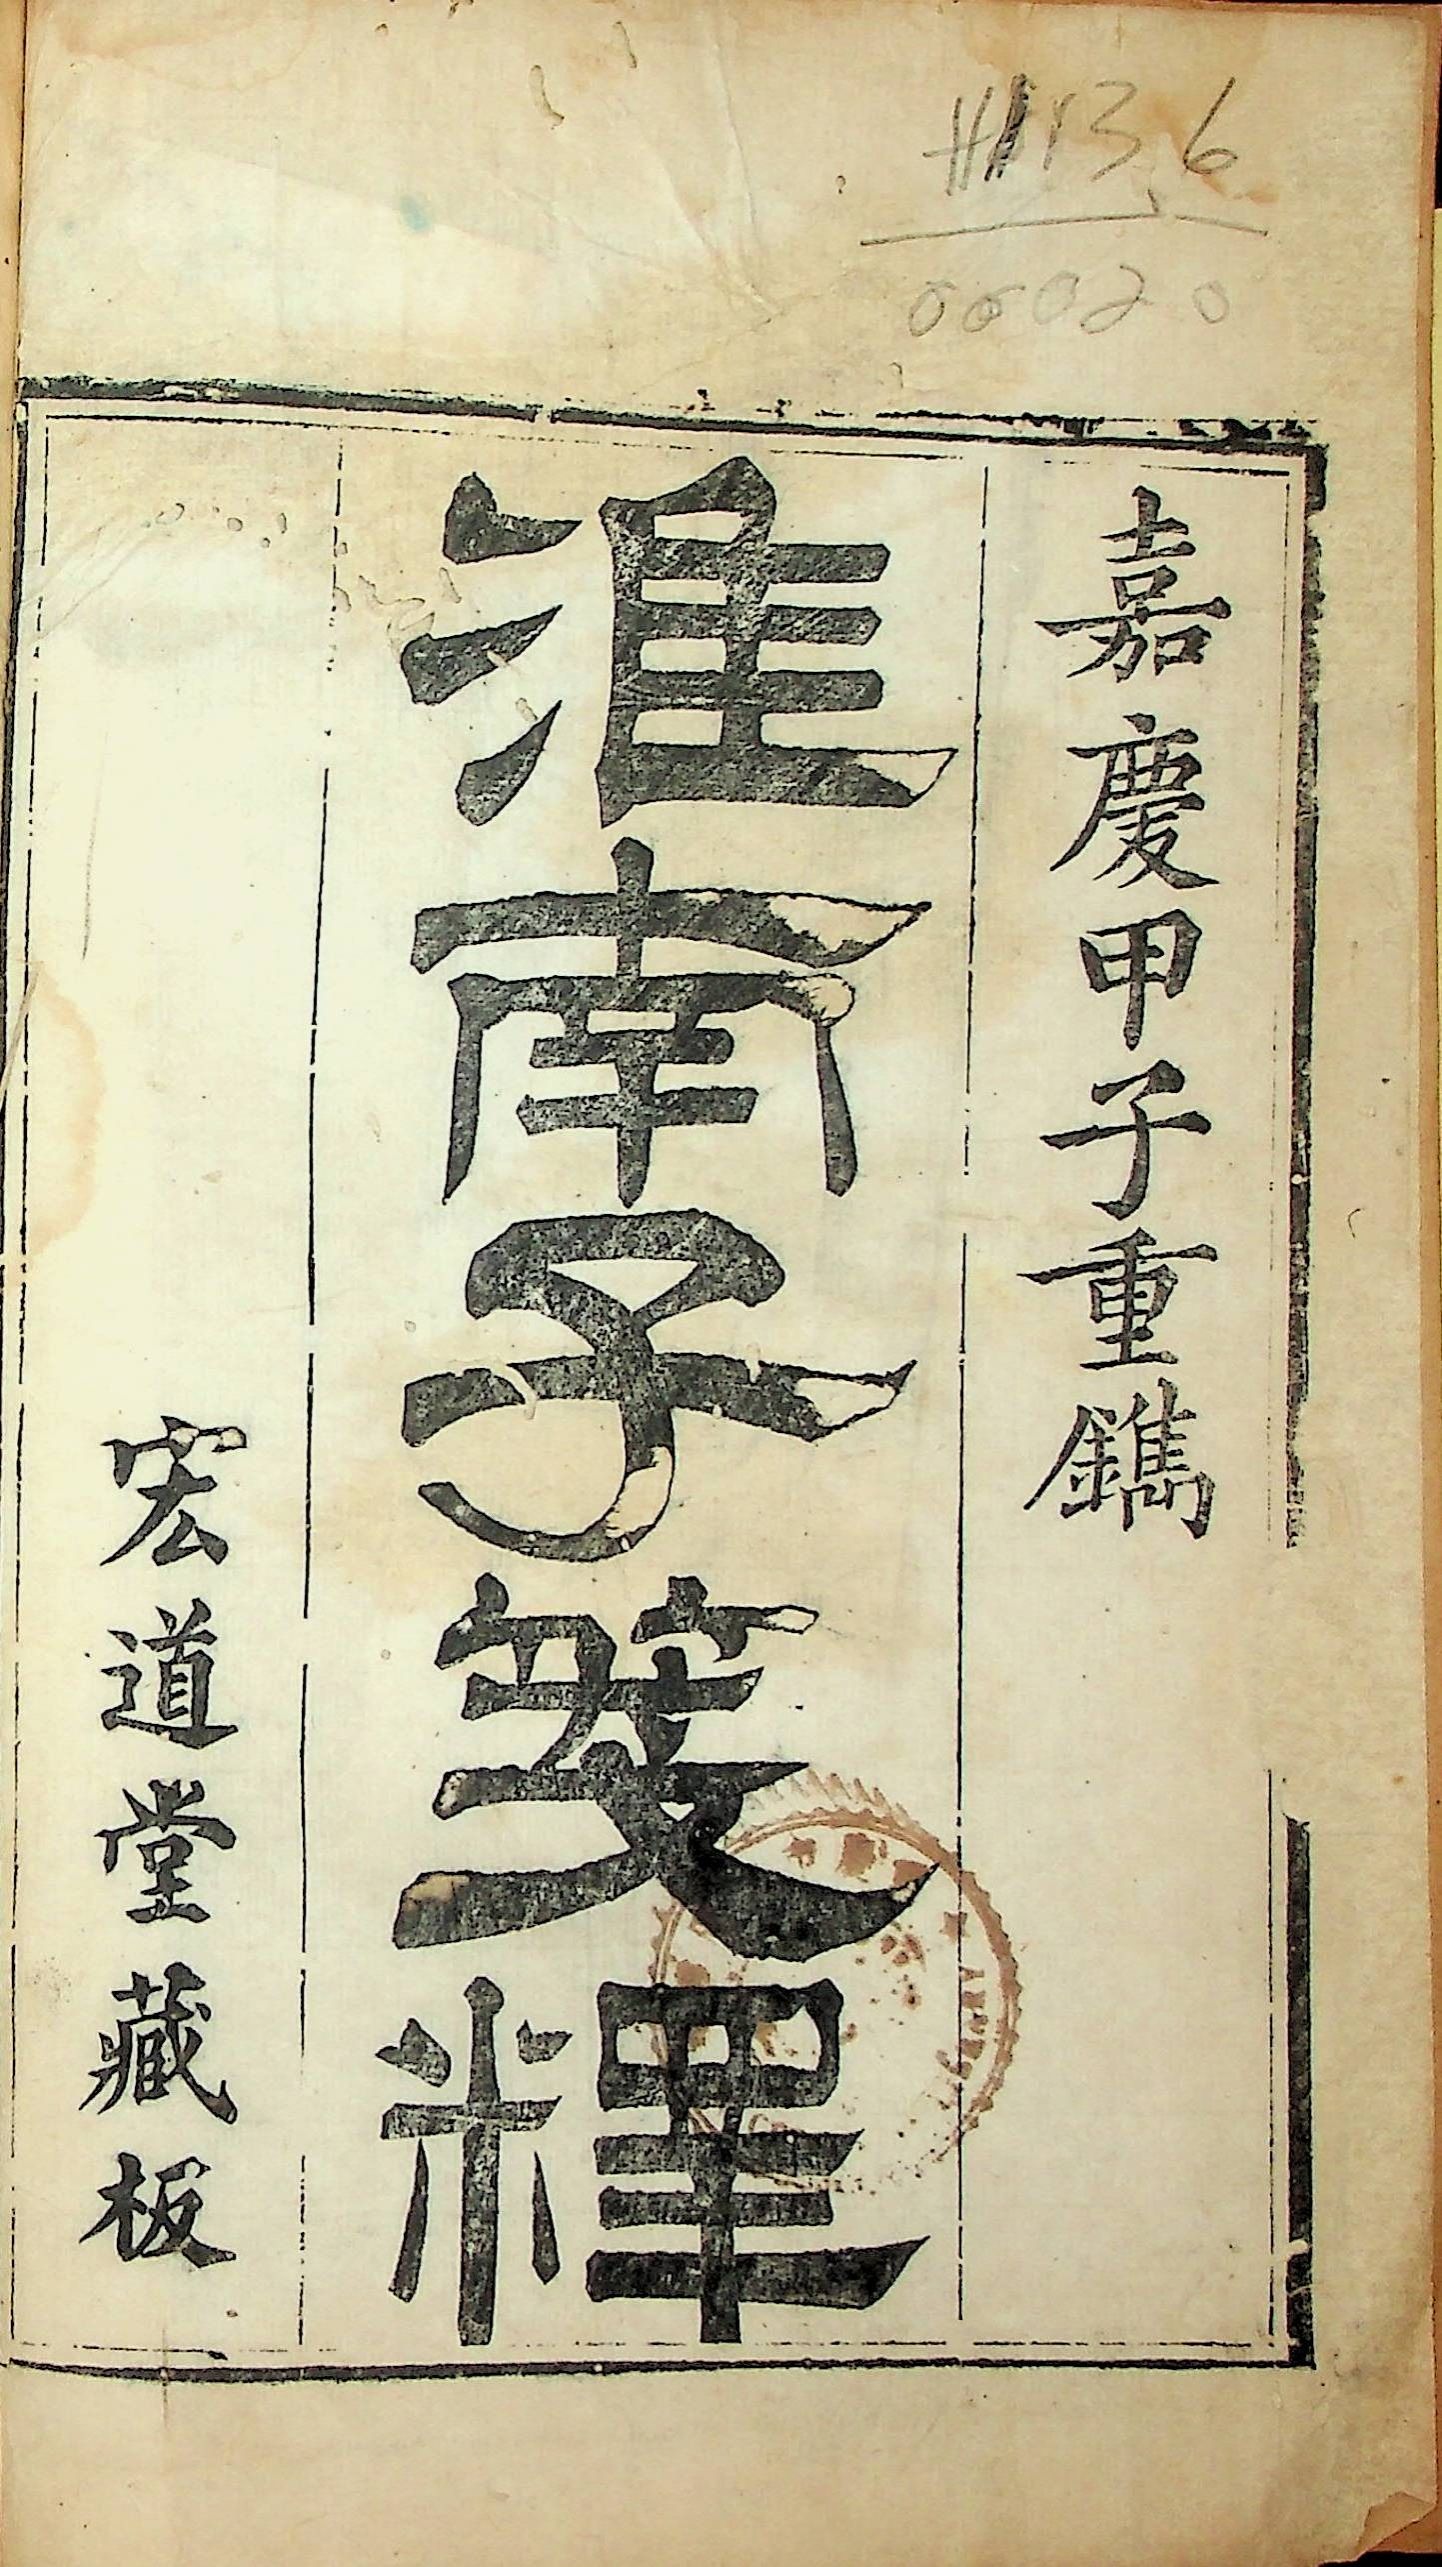 嘉慶甲子重鐫
淮南子箋釋
宏道堂藏板